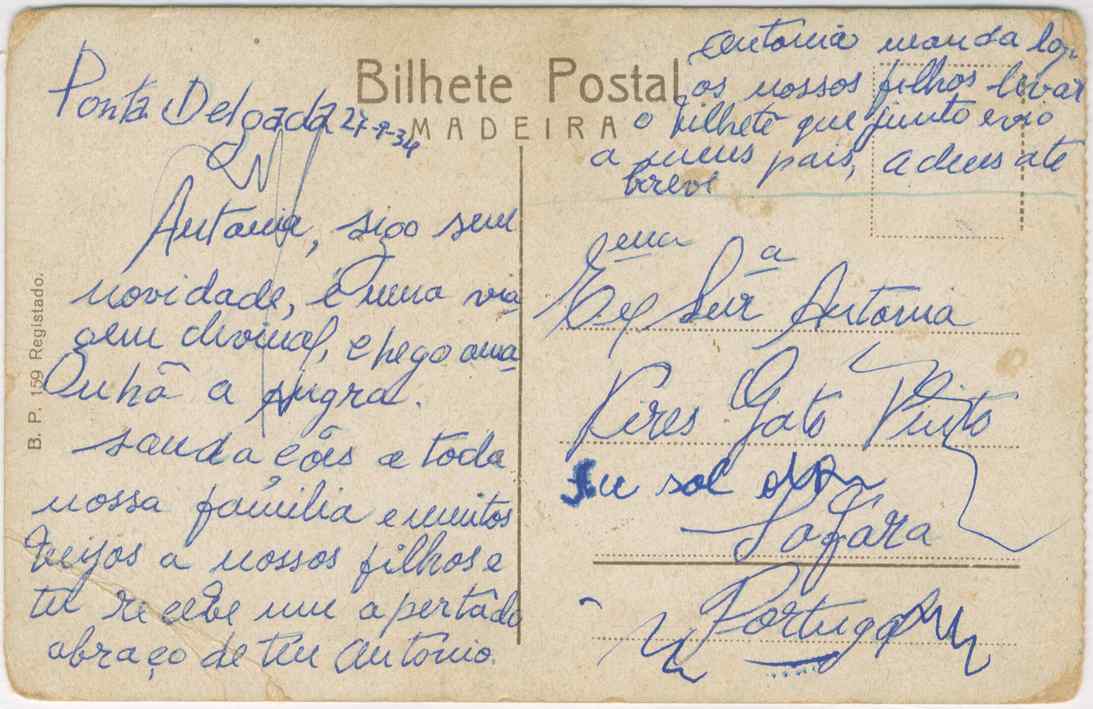 Bilhete Postal
MADEIRA
B. P. 159 Registado.
Ponta Delgada 27-9-34
Antonia, sigo sem
novidade, é uma via
gem divinal, chego ama
nhã a Angra.
saudações a toda
nossa familia e muitos
beijos a nossos filhos e
tu recebe um apertado
abraço de teu Antonio.
Antonia manda logo
os nossos filhos levar
o bilhete que junto envio
a meus pais, adeus até
breve
Exma Snra Antonia
Pires Gato Pinto
Rua sol
Safara
Portugal